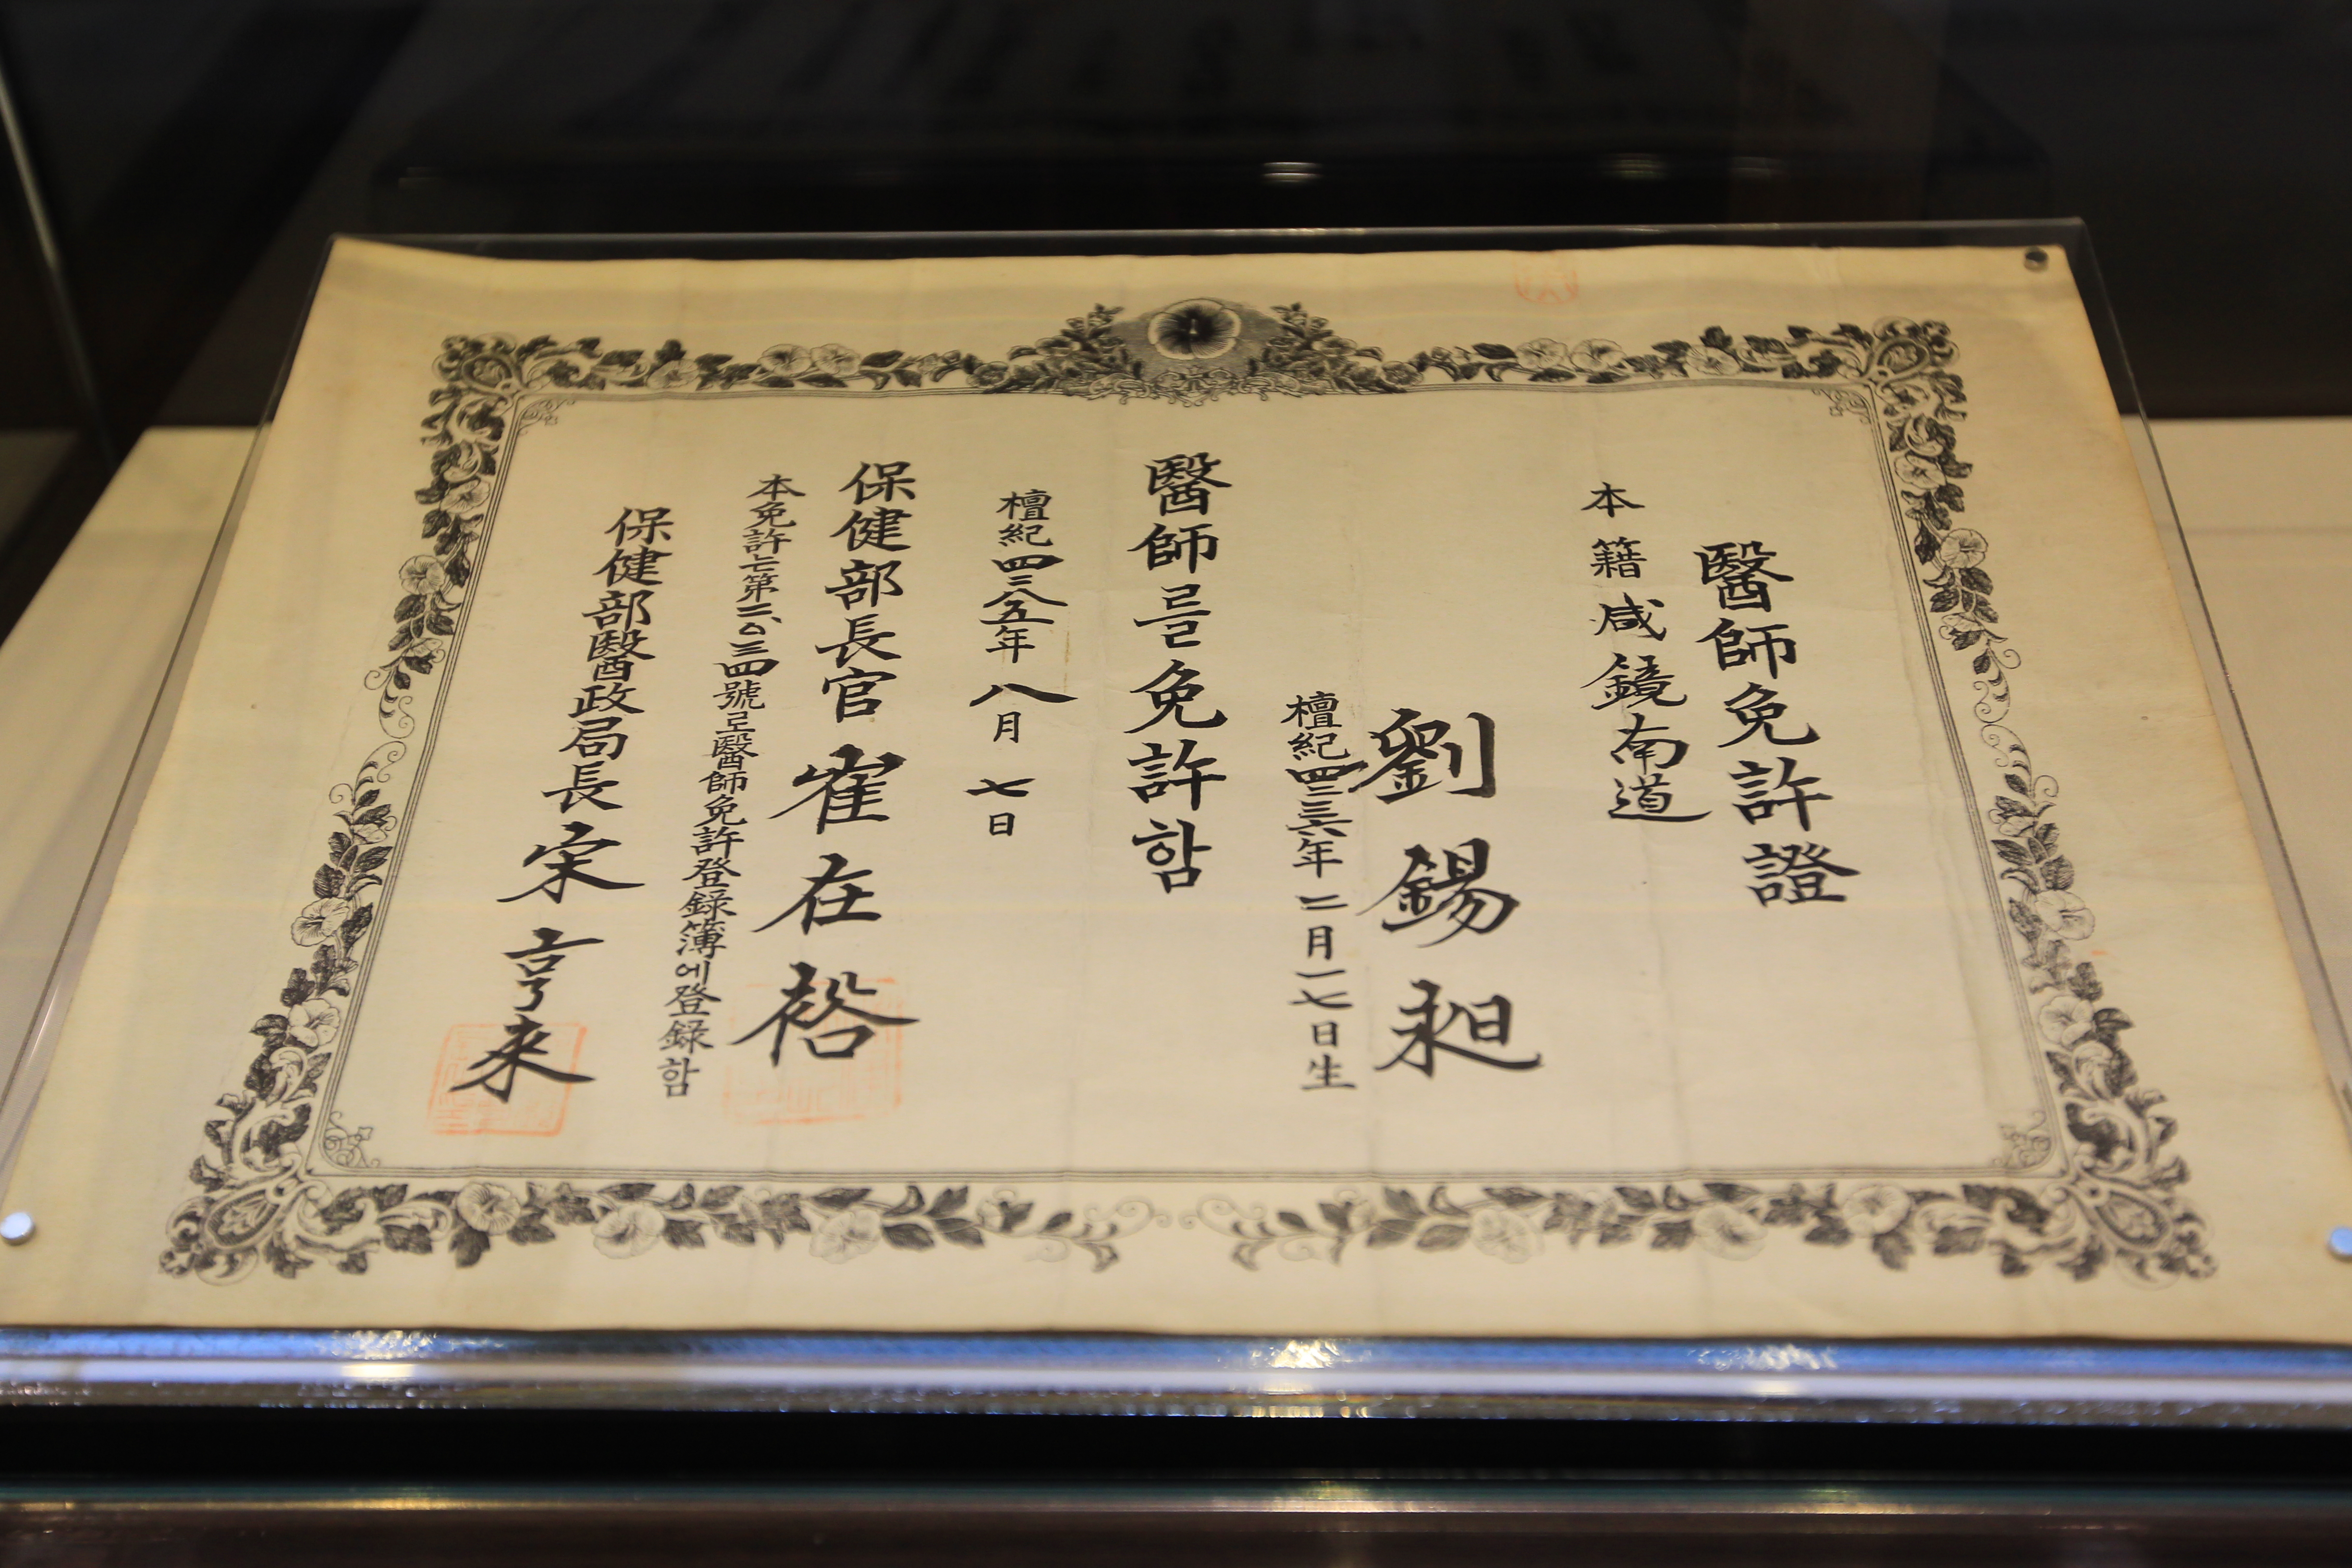 醫師免許證
本籍 咸鏡南道
劉錫昶
檀紀四二三六年二月一七日生
醫師를免許함
檀紀四二八五年八月七日
保健部長官 崔在裕
本免許는第二、〇三四號로醫師免許登錄簿에登錄함
保健部醫政局長 宋亨来